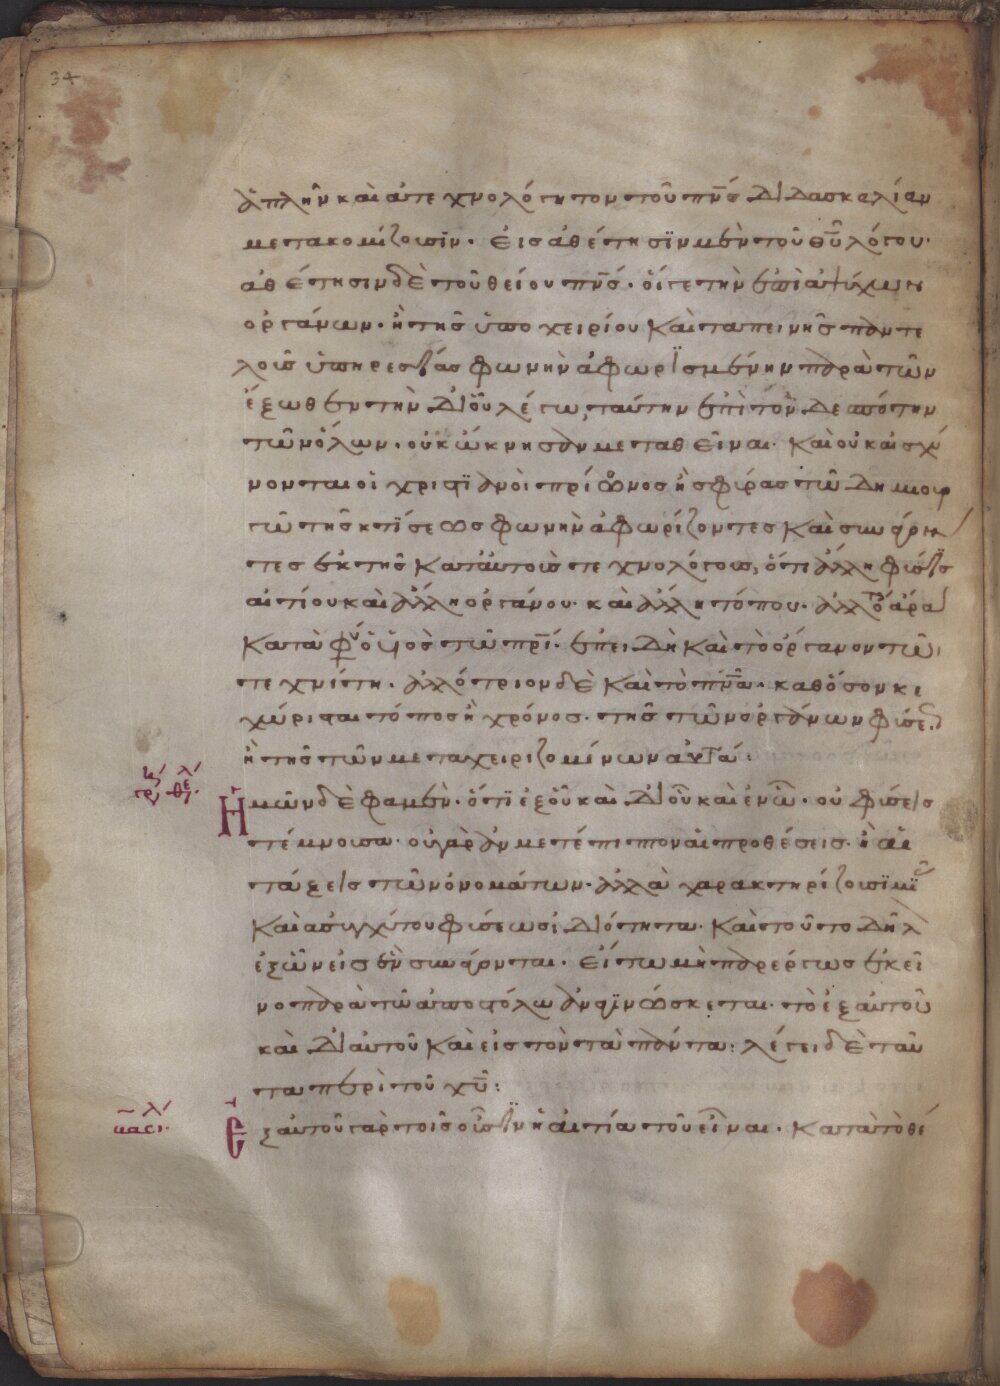 34
ἁπλῆν καὶ ἀτεχνολόγητον τοῦ πν̅ς διδασκαλίαν
μετακομίζουσϊν. εἰς ἀθέτησϊν μὲν τοῦ θυ̅ λόγου.
ἀθέτησιν δὲ τοῦ θείου πν̅ς. οἵγε τὴν ἐπὶ ἀψύχων
ὀργάνων. ἢ τῆς ὑποχειρίου καὶ ταπεινῆς παντε
λῶς ὑπηρεσίας φωνὴν ἀφωρϊσμένην παρὰ τῶν
ἔξωθεν τὴν δι οὗ λέγω, ταύτην ἐπὶ τὸν δεσπότην
τῶν ὅλων. οὐκ ὤκνησαν μεταθεῖναι. καὶ οὐκ αἰσχύ
νονται οἱ χριστϊανοὶ πρίονος ἢ σφύρας τῶ δημιουρ
γῶ τῆς κτϊσεως φωνὴν ἀφωρίζοντες καὶ συνάρπα
τες ἐκ τῆς κατ αὐτοὺς τεχνολόγους, ὅτι ἄλλη φύσις
αἰτίου καὶ ἄλλη ὀργάνου. καὶ ἄλλη τόπου. ἀλλότριος ἄρα
κατὰ φύ ὁ υἱὸς τῶ πρι̅. ἐπειδὴ καὶ τὸ ὄργανον τῶ
τεχνίτη. ἀλλότριον δὲ καὶ τὸ πνα̅. καθόσον κε
χώρισται τόπος ἢ χρόνος. τῆς τῶν ὀργάνων φύσε.
ἢ τῆς τῶν μεταχειριζομένων αὐτά:
Ἡμῶν δὲ φαμὲν. ὅτϊ ἐξ οὗ καὶ δι οὗ καὶ ἐν ὧ. οὐ φύσεις
τέμνουσα. οὐ γὰρ ἂν μετέπιπτον αἱ προθέσεις. ἢ αἱ
τάξεις τῶν ὀνομάτων. ἀλλὰ χαρακτηρίζουσϊ μϊ
καὶ ἀσυγχύτου φύσεως ἰδιότητα. καὶ τοῦτο δῆλ
ἐξ ὧν εἰς ἓν συνάγονται. εἴ τω μὴ παρέργως ἐκεῖ
νο παρὰ τῶ ἀποστόλω ἀναγϊνώσκεται. τὸ ἐξ αὐτοῦ
καὶ δι αὐτοῦ καὶ εἰς τὸν τὰ πάντα: λέγει δὲ ταῦ
τα περὶ τοῦ χυ̅:
Ἐξ αὐτοῦ γὰρ τοῖς οὖσϊν ἡ αἰτία τοῦ εἶναι. κατὰ τὸ θέ